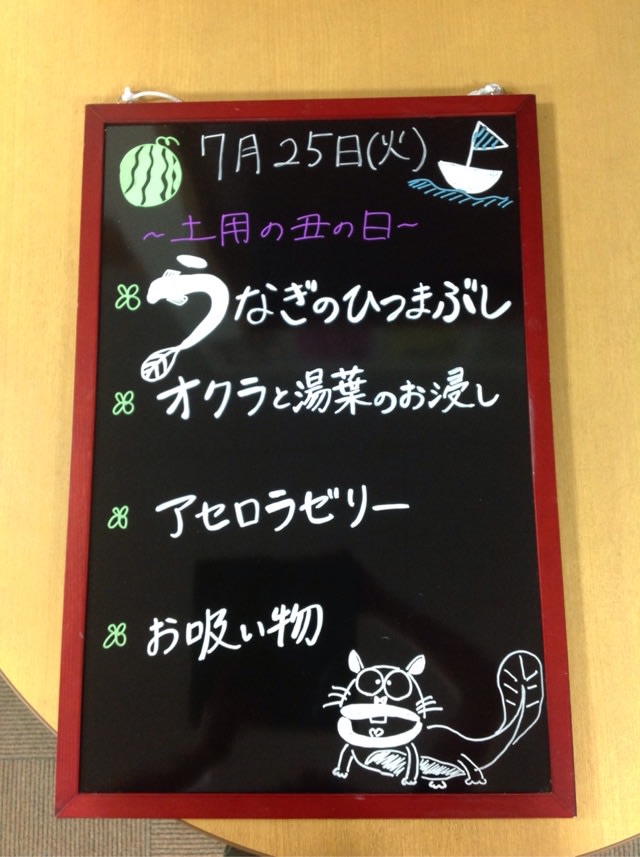 7月25日(火)
~土用の丑の日~
うなぎのひつまぶし
オクラと湯葉のお浸し
アセロラゼリー
お吸い物